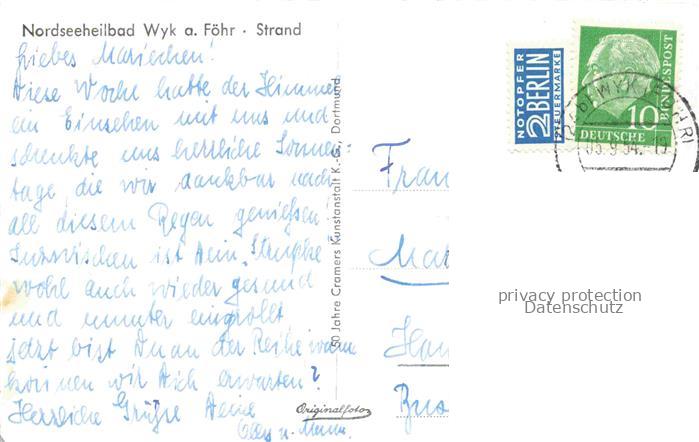 Nordseeheilbad Wyk a. Föhr · Strand
Liebes Mariechen!
Diese Woche hatte der Himmel
ein Einsehen mit uns und
schenkte uns herrliche Sonnen-
tage, die wir dankbar nach
all diesem Regen genießen.
Inzwischen ist Dein
wohl auch wieder gesund
und munter
Jetzt bist Du an der Reihe wann
können wir Dich erwarten?
Herzliche Grüße Deine
u.
50 Jahre Cramers Kunstanstalt K.-G., Dortmund
Originalfoto
NOTOPFER
2 BERLIN
STEUERMARKE
10
DEUTSCHE
BUNDESPOST
WYK
9.54.-19
Frau
privacy protection
Datenschutz